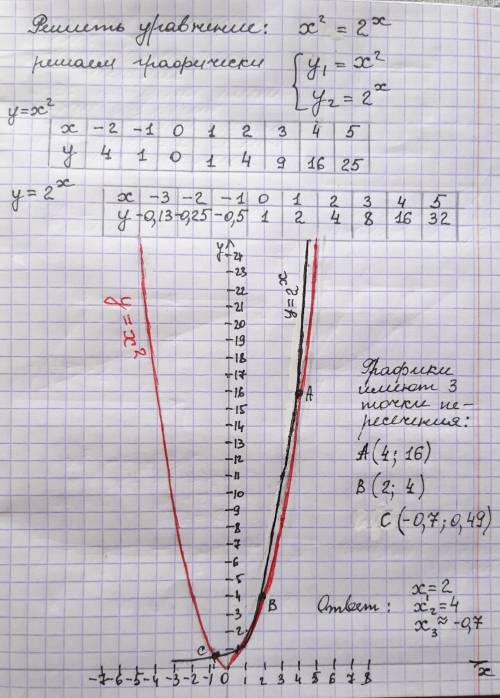 Решить уравнение: x² = 2ˣ
решаем графически { y₁ = x²
y₂ = 2ˣ
y=x²
x -2 -1 0 1 2 3 4 5
y 4 1 0 1 4 9 16 25
y=2ˣ
x -3 -2 -1 0 1 2 3 4 5
y -0,13 -0,25 -0,5 1 2 4 8 16 32
y
24
23
22
21
20
19
18
17
16
15
14
13
12
11
10
9
8
7
6
5
4
3
2
y = x²
y=2ˣ
A
B
C
Графики
имеют 3
точки пе-
ресечения:
A(4; 16)
B(2; 4)
C(-0,7; 0,49)
Ответ: x₁=2
x₂=4
x₃≈-0,7
-7 -6 -5 -4 -3 -2 -1 0 1 2 3 4 5 6 7 8 x